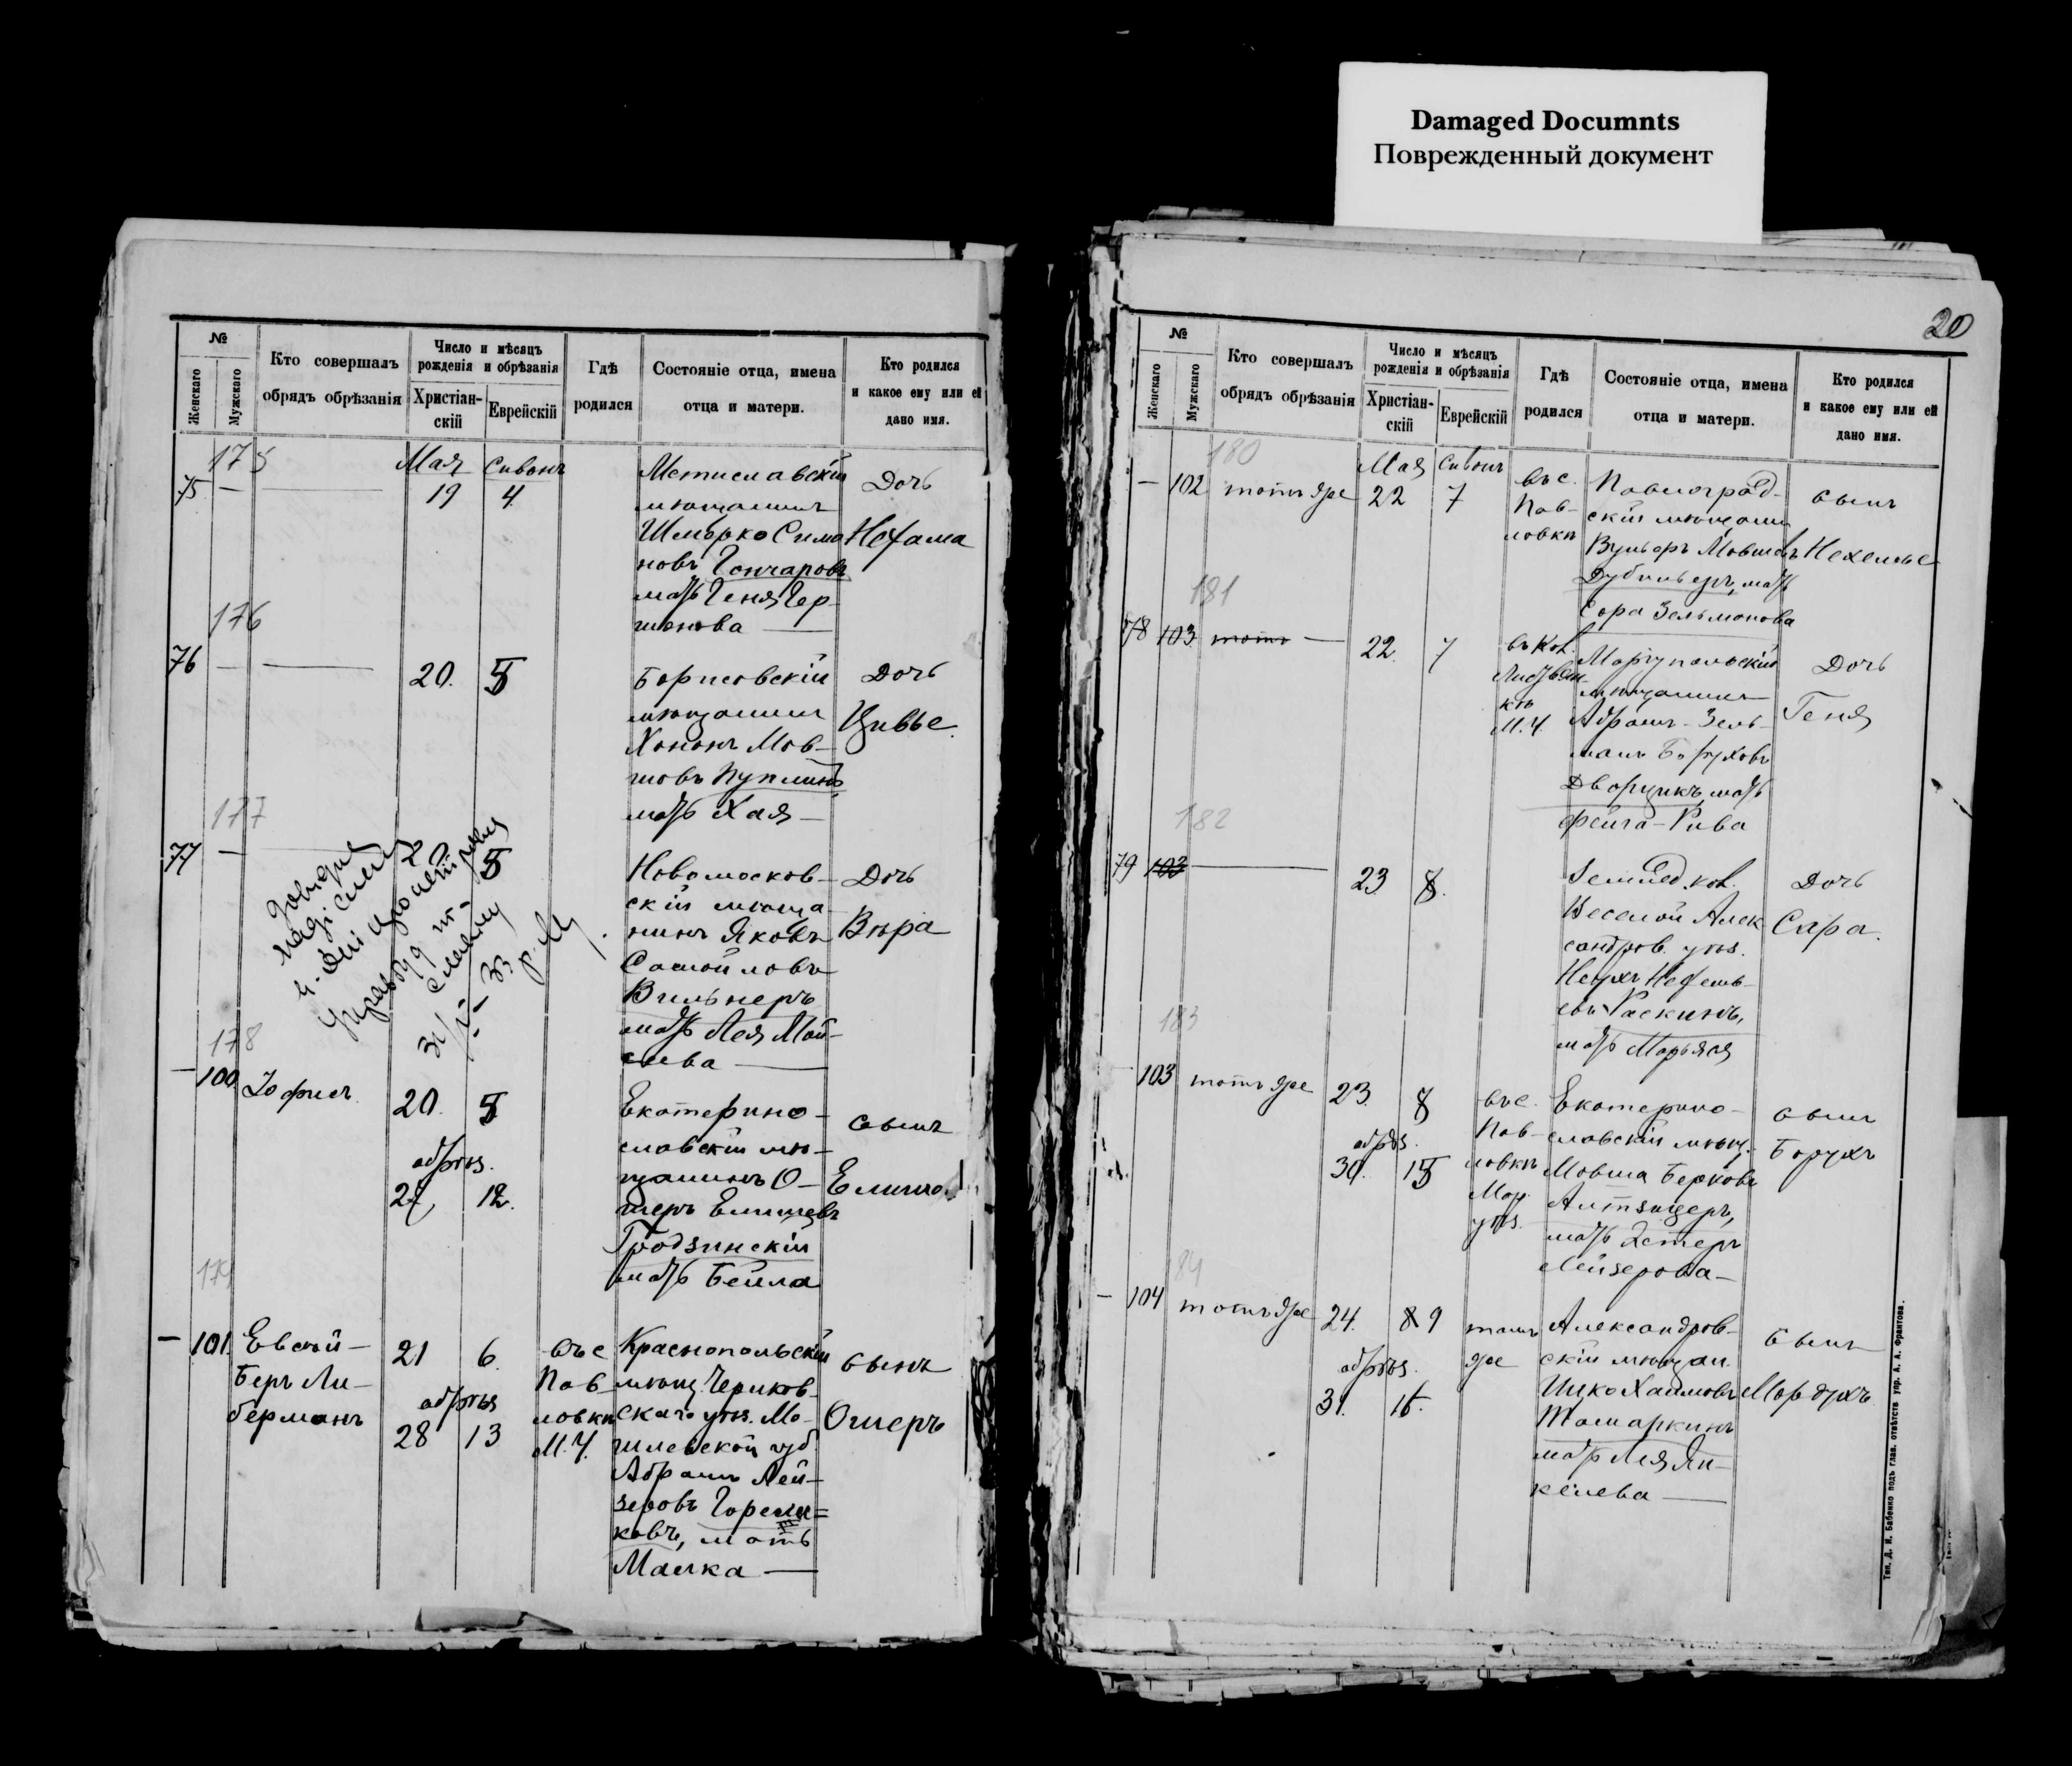 Damaged Documnts
Поврежденный документ
№
Женскаго
Мужскаго
Кто совершалъ
обрядъ обрѣзанія
Число и мѣсяцъ
рожденія и обрѣзанія
Христіан-
скій
Еврейскій
Гдѣ
родился
Состояніе отца, имена
отца и матери.
Кто родился
и какое ему или ей
дано имя.
175
75 —
Мая Сивонъ
19 4
Мстиславскій
мѣщанинъ
Шмерко Симо
новъ Гончаровъ
мать Геня Гер-
шонова —
Дочь
Нехама
176
76 —
20. 5
Борисовскій
мѣщанинъ
Хононъ Мов-
шовъ
мать Хая —
Дочь
Цивье.
177
77 —
20 5
Новомосков-
скій мѣща-
нинъ Яковъ
Самойловъ
Вильнеръ
мать Лея Мои-
сеева —
Дочь
Вѣра
178
— 100
20. 5
обрѣз.
27, 12.
Екатерино-
славскій мѣ-
щанинъ О-
шеръ Елишевъ
Гродзинскій
мать Бейла
сынъ
179
— 101.
Евсѣй-
Беръ Ли-
берманъ
21 6.
обрѣз
28 13
въ с
Пав-
ловкѣ
М.У.
Краснопольскій
мѣщ. Чериков-
скаго уѣз. Мо-
гилевской губ.
Абрамъ Лей-
зеровъ
ковъ, мать
Малка —
сынъ
Ошеръ
20
№
Женскаго
Мужскаго
Кто совершалъ
обрядъ обрѣзанія
Число и мѣсяцъ
рожденія и обрѣзанія
Христіан-
скій
Еврейскій
Гдѣ
родился
Состояніе отца, имена
отца и матери.
Кто родился
и какое ему или ей
дано имя.
180
— 102
тотъ же
Мая Сивонъ
22 7
въ с.
Пав-
ловкѣ
Павлоград-
скій мѣщанин
Вульфъ Мовшовъ
мать
Сора Зельманова
сынъ
Нехемье
181
78 103
тотъ —
22. 7
въ кол.
М.У.
Маріупольскій
мѣщанинъ
Абрамъ-Зель-
манъ Боруховъ
Дворцикъ, мать
Фейга-Рива
Дочь
Геня
182
79 103 —
23 8.
Землед. кол.
Веселой Алек
сандров. уѣз.
Раскинъ,
мать Марьяся
Дочь
Сара.
183
103
тотъ же
23. 8
обрѣз.
30. 15
въ с.
Пав-
ловкѣ
Мар.
уѣз.
Екатерино-
славскій мѣщ.
Мовша Беркова
мать Эстеръ
Лейзерова —
сынъ
Борухъ
84
— 104
тотъ же
24. 8 9
обрѣз.
31. 16.
тамъ
же
Александров-
скій мѣщан.
Ицко Хаимовъ
Томаркинъ
мать Лея Ян-
келева —
сынъ
Мордухъ
Тип. Д. И. Бабенко подъ глав. отвѣтств упр. А. А. Франтова.